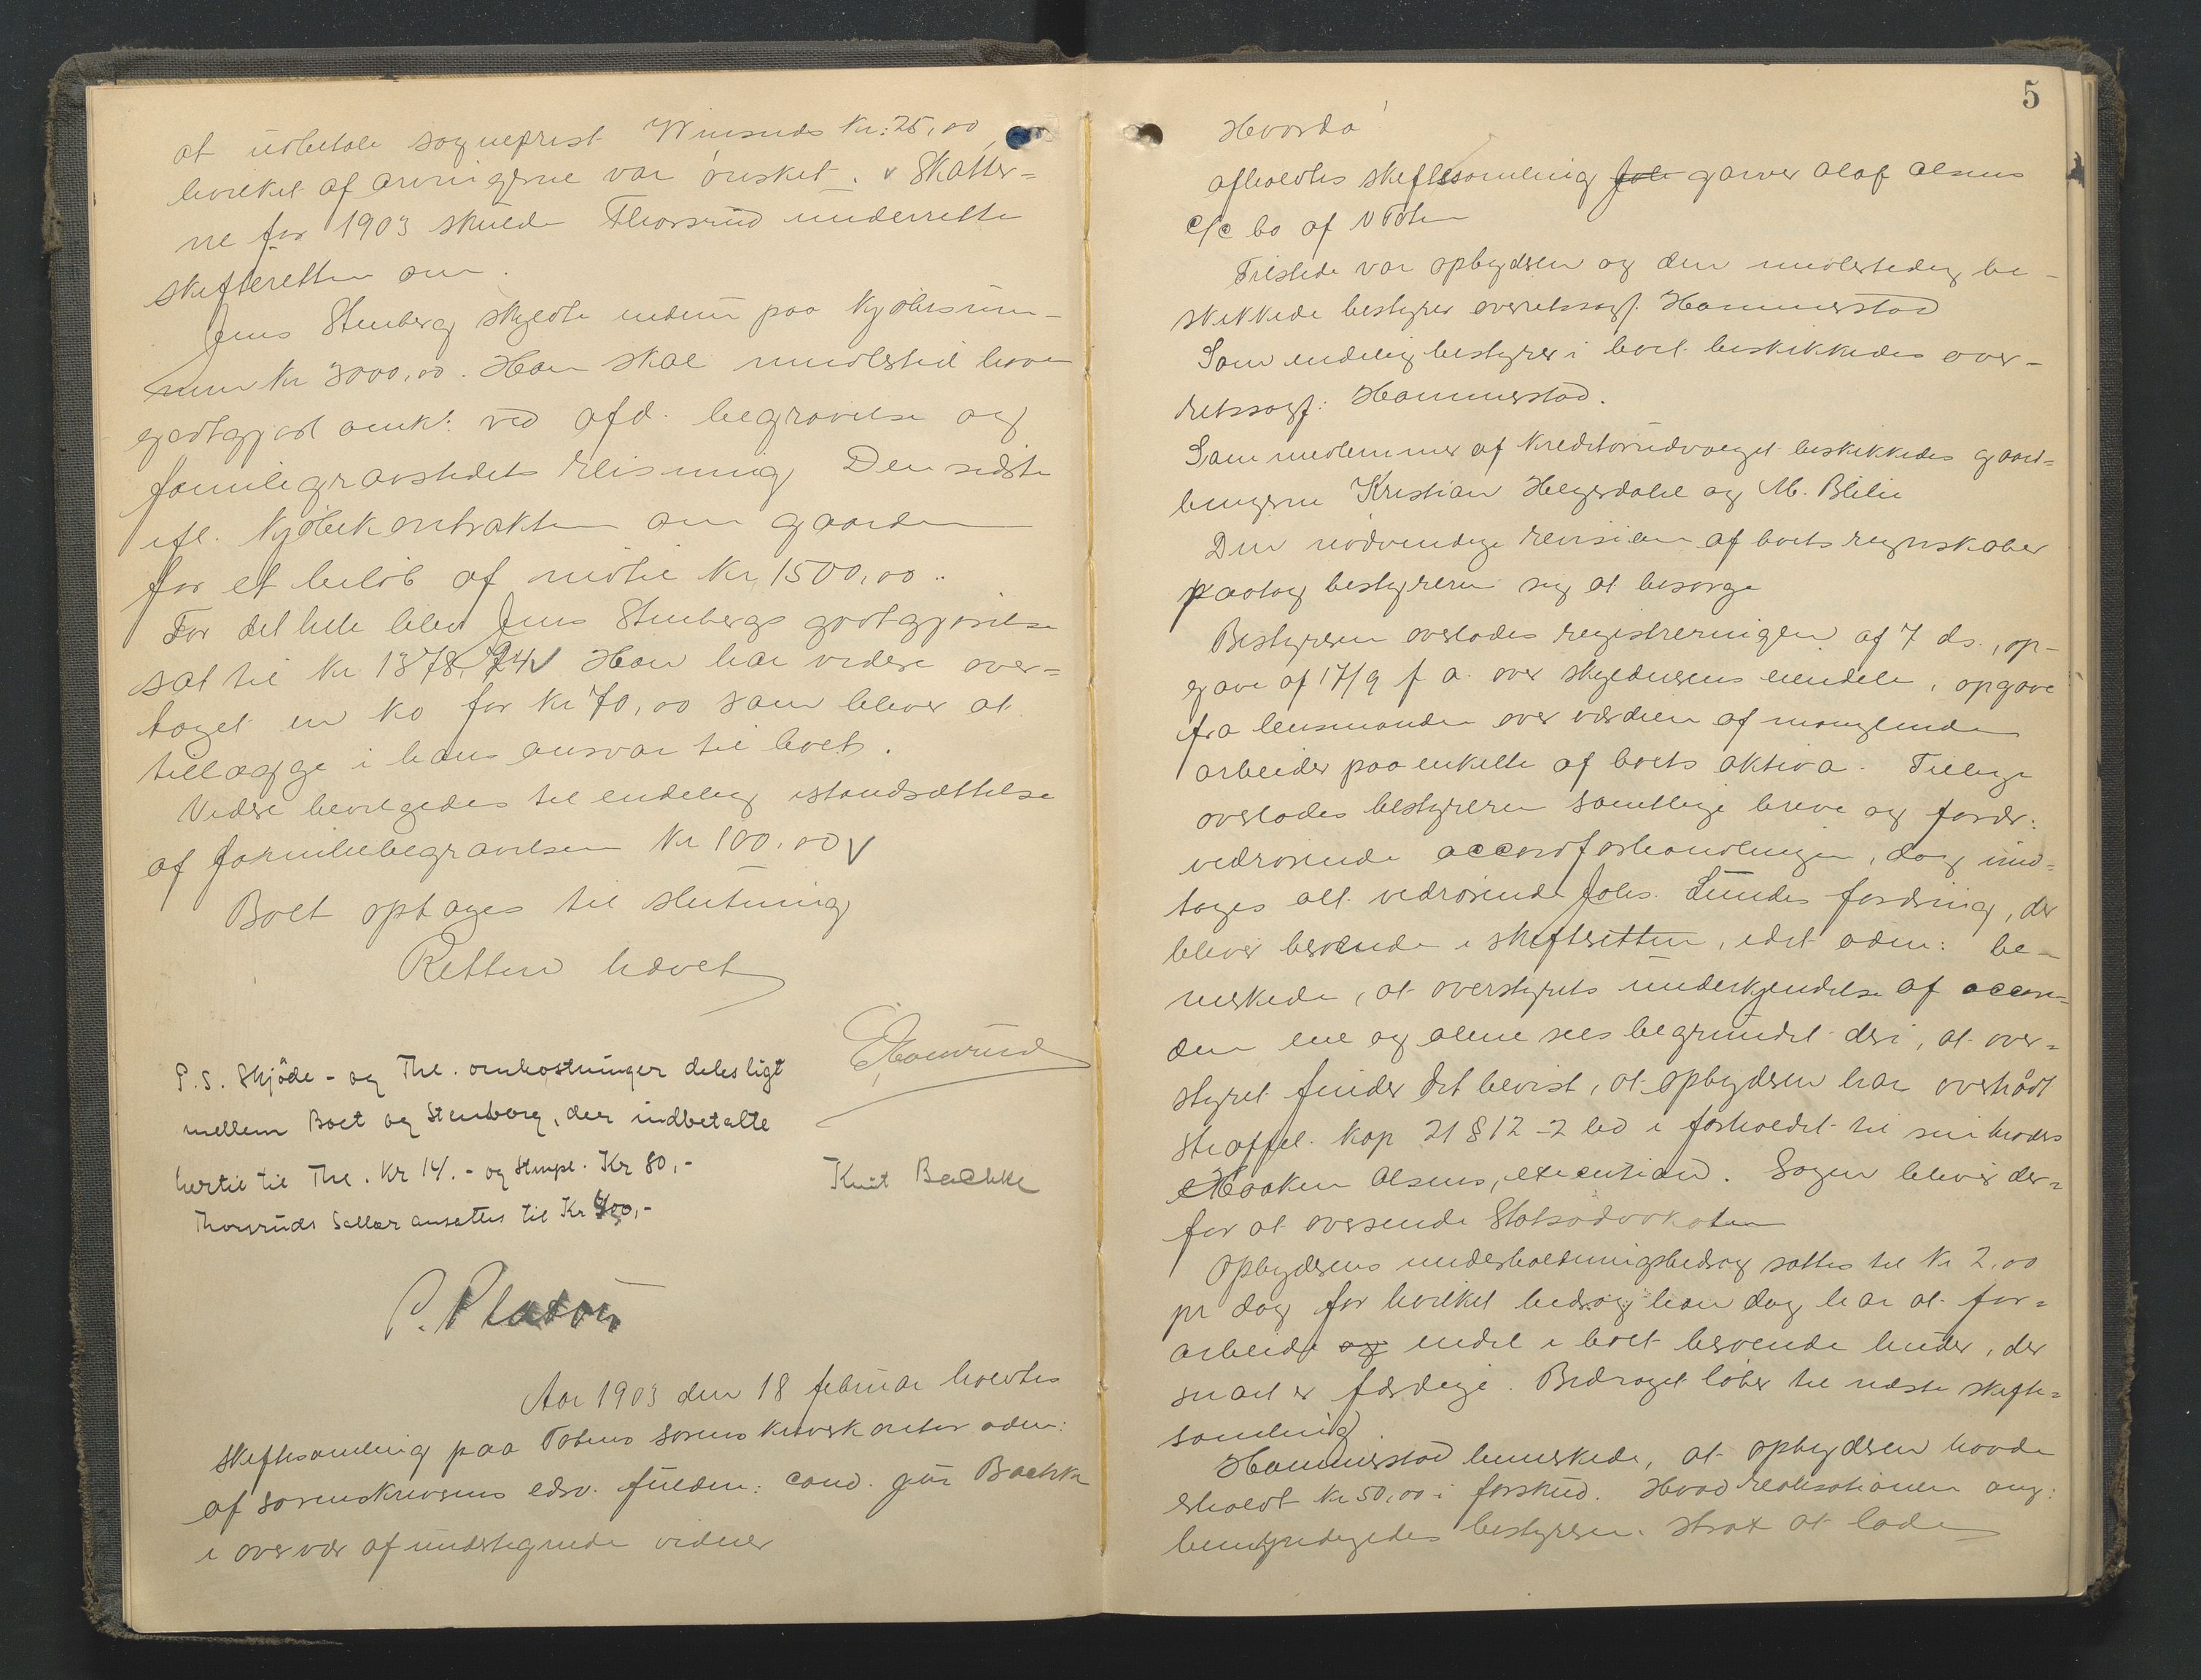 at udbetale sogneprest Wiesnes Kr: 25,00,
hvilket af arvingerne var ønsket. v Skatter=
ne for 1903 skulde Thorsrud underrette
skifteretten om.
Jens Stenberg skyldte endnu paa kjøbesum-
men Kr 3000,00. Han skal imidlertid have
godtgjort omk: ved afd. begravelse og
familiegravstedets reisning Den sidste
ifl. kjøbekontrakten om gaarden
for et beløb af indtil Kr, 1500,00..
For det hele blev Jens Stenbergs godtgjørelse
sat til Kr 1378,74 v Han har videre over=
taget en ko for Kr 70,00 som bliver at
tillægge i hans ansvar til boet.
Videre bevilgedes til endelig istandsættelse
af familiebegravelsen Kr 100,00 v
Boet optages til slutning
Retten hævet
P.S. Skjöde- og Thl. omkostninger deles ligt
mellem Boet og Stenberg, der indbetalte
hertil til Thl. Kr 14.- og Stmpl. Kr 80,-
Thorsruds Sallær ansattes til Kr 400,-
Knut Bachke
P. Platou
Aar 1903 den 18 februar holdtes
Skiftesamling paa Totens sorenskriverkontor adm:
af sorenskriverens edsv. fuldm: cand. jur Bachke
i overvær af undertegnede vidner
5
Hvorda
afholdtes skiftesamling i garver Olaf Olsens
c/c bo af V Toten
Tilstede var opbyderen og den midlertidig be-
skikkede bestyrer overretssagf. Hammerstad
Som endelig bestyrer i boet beskikkedes over-
retssagf: Hammerstad.
Som medlemmer af kreditorudvalget beskikkedes gaard-
brugerne Kristian Helgerdahl og M. Blilie
Den nødvendige revision af boets regnskaber
paatog bestyreren sig at besørge
Bestyreren overlodes registreringen af 7 ds., op-
gave af 17/9 f a. over skyldnerens eiendele, opgave
fra lensmanden over værdien af manglende
arbeider paa enkelte af boets aktiva. Tillige
overlodes bestyreren samtlige breve og fordr:
vedrørende accordforhandlingen, dog und=
tages alt vedrørende Johs. Lundes fordring, der
bliver beroende i skifteretten, idet adm: be-
merkede, at overstyrets underkjendelse af accor=
den ene og alene sees begrundet deri, at over=
styret finder det bevist, at opbyderen har overtrådt
straffel. Kap 21 § 12 - 2 led i forholdet til sin broders
Haaken Olsens, execution. Sagen bliver der=
for at oversende Statsadvokaten
Opbyderens underholdningsbidrag sattes til Kr 2,00
pr dag for hvilket bidrag han dog har at for=
arbeide endel i boet beroende huder, der
snart er færdige. Bidraget løber til næste skifte=
samling
Hammerstad bemerkede, at opbyderen havde
erholdt Kr 50,00 i forskud. Hvad realisationen ang:
bemyndigedes bestyreren strax at lade